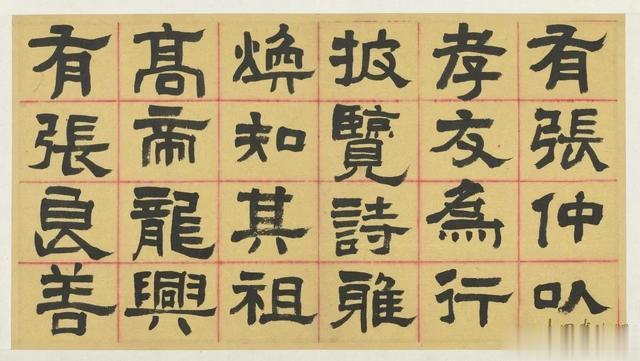 有張仲以
孝友為行
披覽詩雅
煥知其祖
髙帝龍興
有張良善